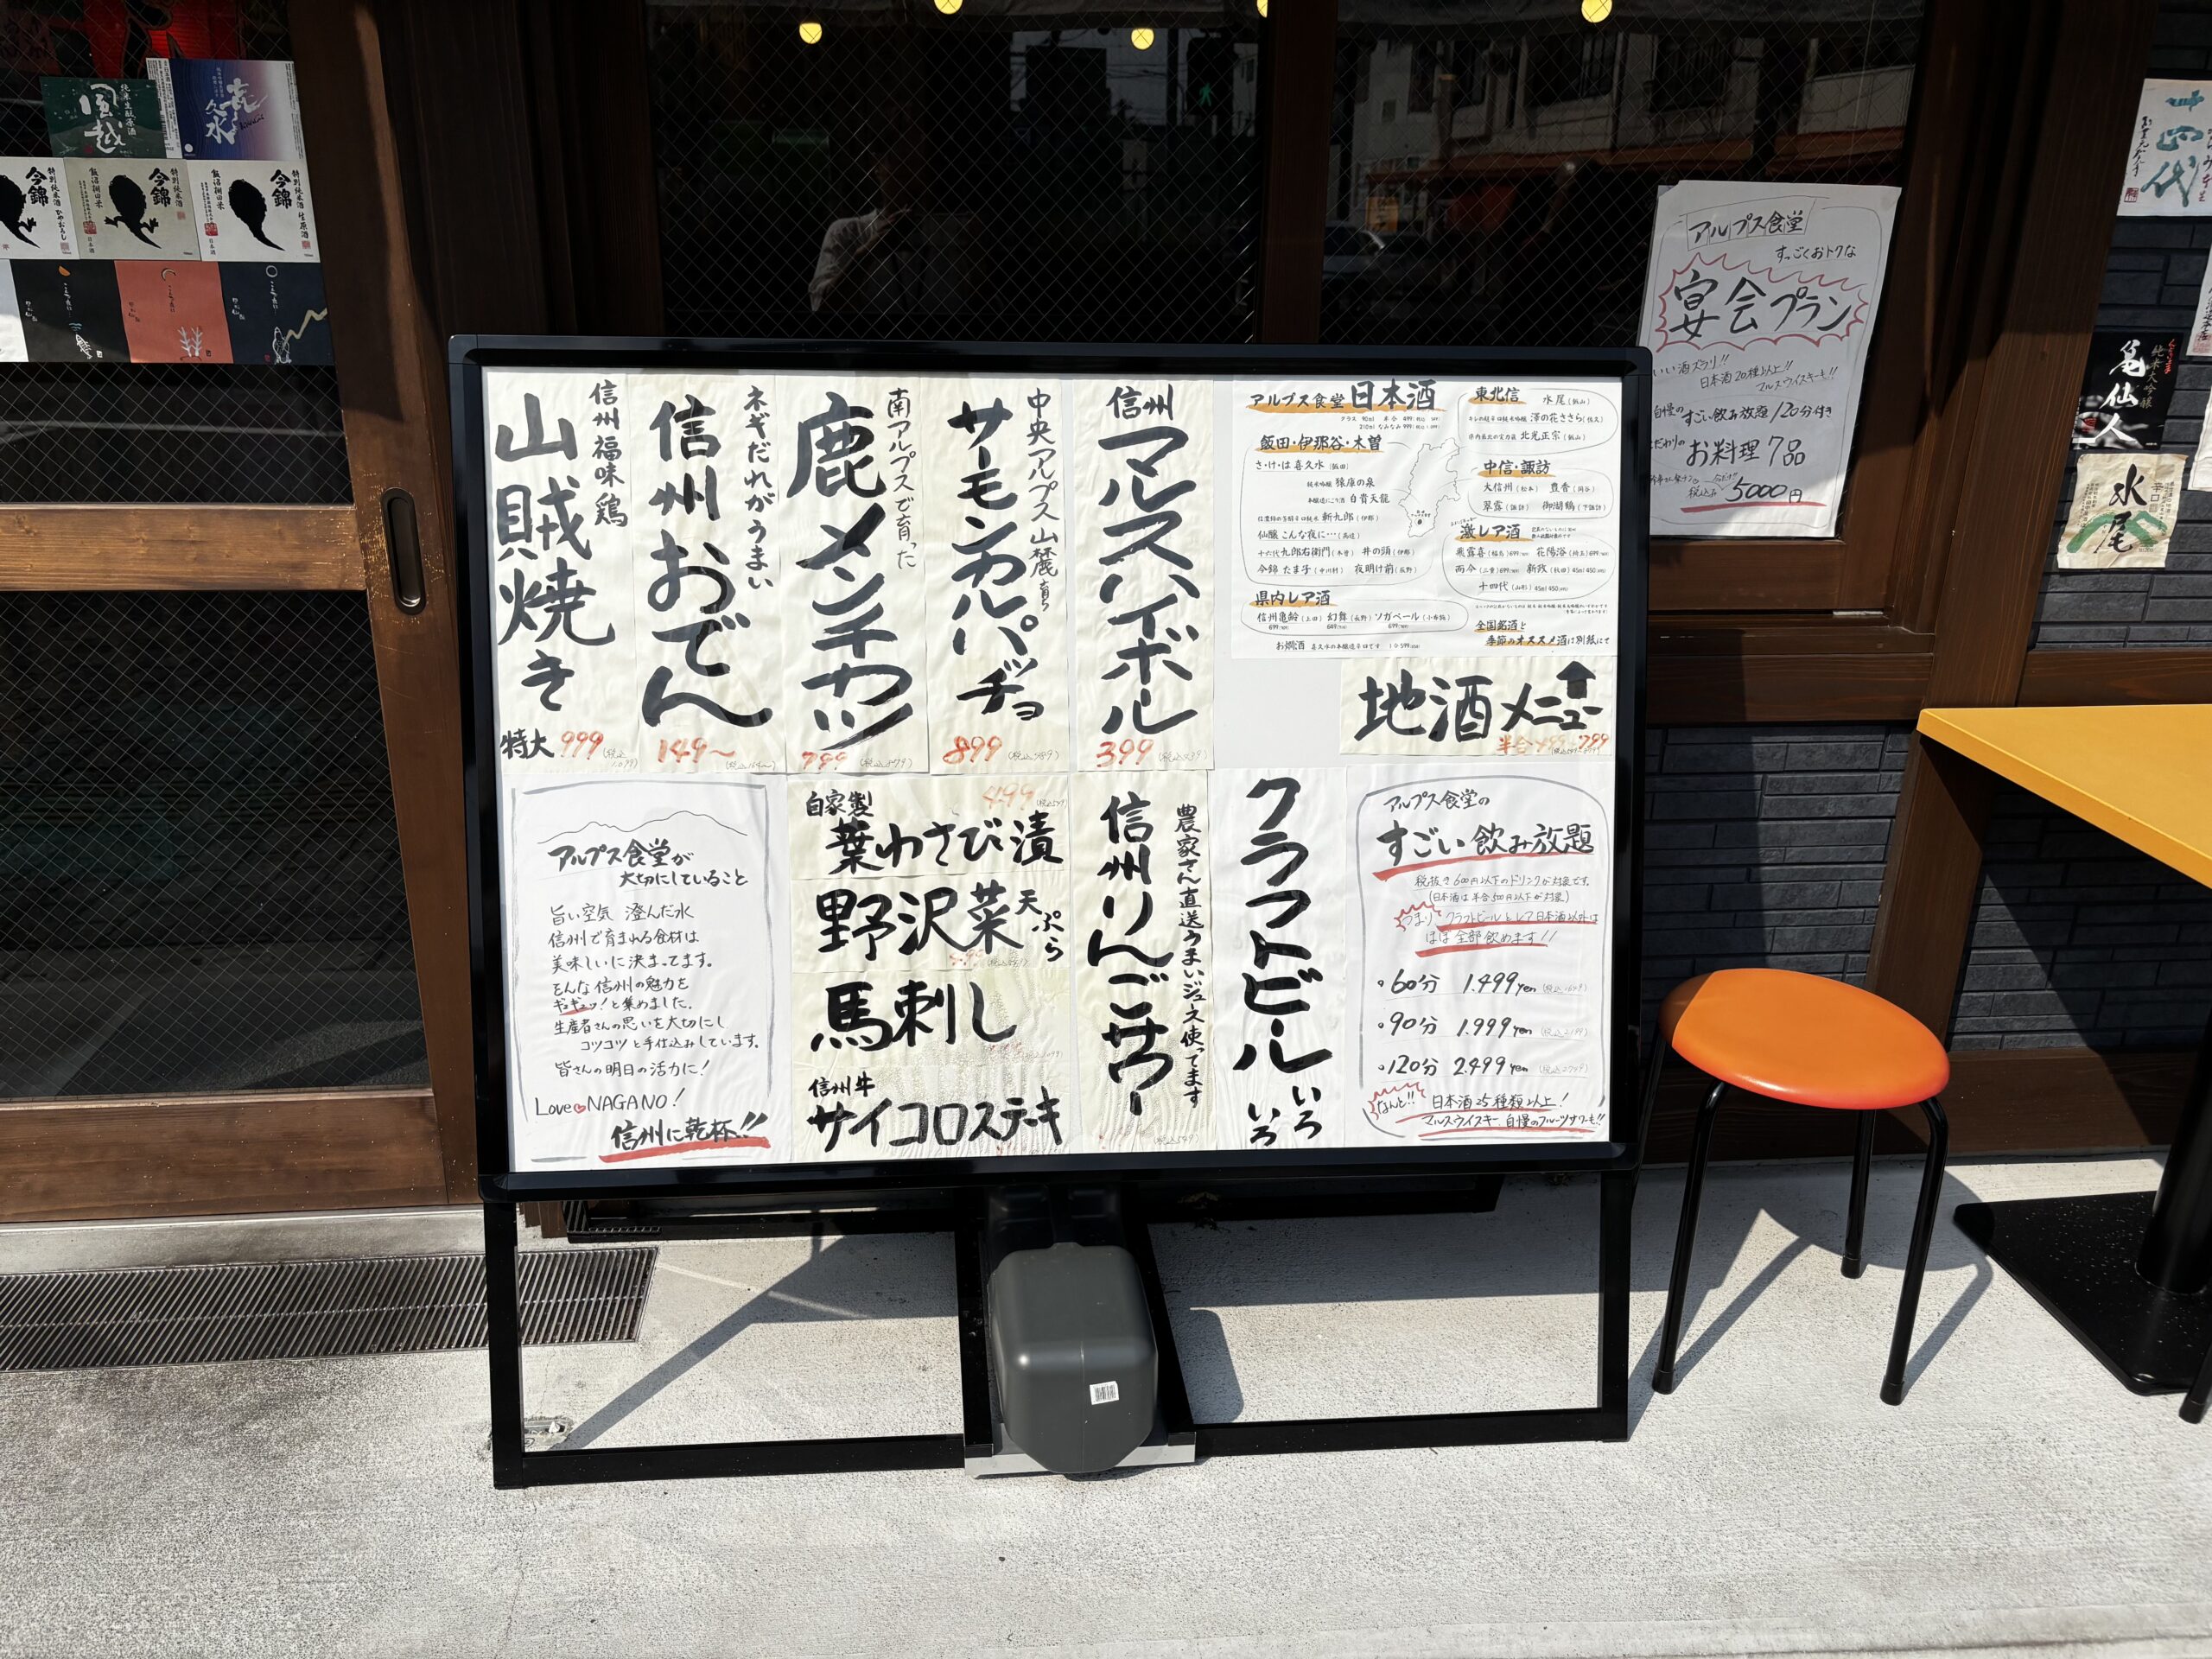 風越
純米生酛原酒
喜久水
今錦
特別純米酒 ひやおろし
今錦
特別純米酒
飯沼棚田米
日本酒
今錦
特別純米酒 生原酒
飯沼棚田米
日本酒
信州福味鶏
山賊焼き
特大 999
ネギだれがうまい
信州おでん
149〜
南アルプスで育った
鹿メンチカツ
799
中央アルプス山麓育ち
サーモンカルパッチョ
899
信州
マルスハイボール
399
アルプス食堂 日本酒
飯田・伊那谷・木曽
さ・け・は 喜久水（飯田）
純米吟醸 猿庫の泉
本醸造にごり酒 白貴天龍
斬九郎（伊那）
仙醸 こんな夜に…（高遠）
十六代九郎右衛門（木曽） 井の頭（伊那）
今錦 たま子（中川村） 夜明け前（辰野）
県内レア酒
信州亀齢（上田） 幻舞（長野） ソガペール（小布施）
お燗酒 喜久水の本醸造辛口です
東北信
水尾（飯山）
澤の花ささら（佐久）
北光正宗（飯山）
中信・諏訪
大信州（松本） 豊香（岡谷）
翠露（諏訪） 御湖鶴（下諏訪）
激レア酒
飛露喜（福島） 花陽浴（埼玉）
而今（三重） 新政（秋田）
十四代（山形）
全国銘酒と
季節のオススメ酒は別紙にて
地酒メニュー
半合499〜799
アルプス食堂が
大切にしていること
旨い空気 澄んだ水
信州で育まれる食材は
美味しいに決まってます。
そんな信州の魅力を
ギュギュッ！と集めました。
生産者さんの思いを大切にし
コツコツと手仕込みしています。
皆さんの明日の活力に！
Love NAGANO！
信州に乾杯!!
自家製
499
葉わさび漬
野沢菜天ぷら
馬刺し
信州牛
サイコロステーキ
農家さん直送うまいジュース使ってます
信州りんごサワー
クラフトビール
いろいろ
アルプス食堂の
すごい飲み放題
税抜き600円以下のドリンクが対象です。
（日本酒は半合500円以下が対象）
つまり クラフトビールとレア日本酒以外は
ほぼ全部飲めます!!
・60分 1.499yen
・90分 1.999yen
・120分 2.499yen
なんと!! 日本酒25種類以上！
マルスウイスキー、自慢のフルーツサワーも!!
アルプス食堂
すっごくおトクな
宴会プラン
いい酒ズラリ!!
日本酒20種以上!!
マルスウイスキーも!!
自慢の すごい飲み放題 120分付き
お料理7品
税込み 5000円
十四代
亀仙人
純米大吟醸
水尾
辛口